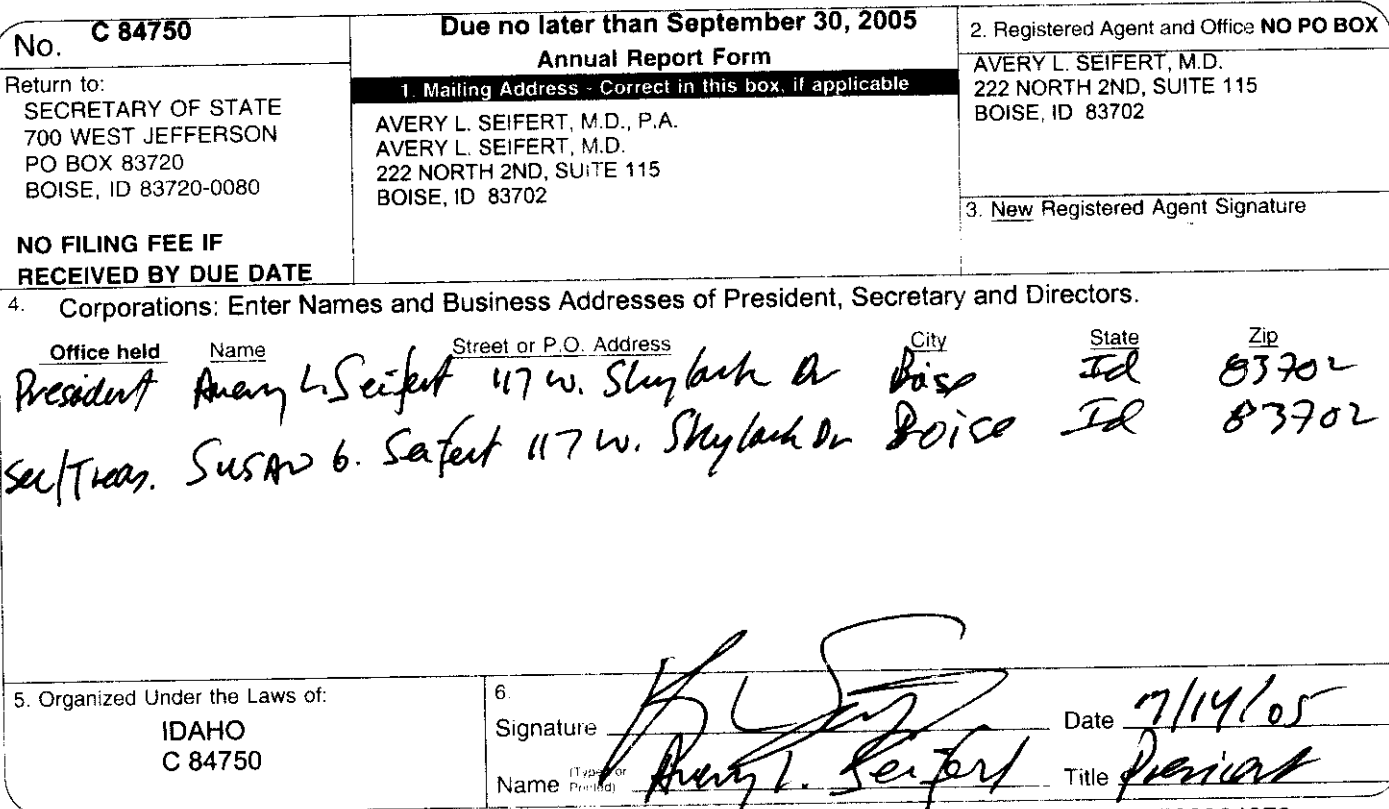 No. C 84750
Due no later than September 30, 2005
Annual Report Form
Return to:
SECRETARY OF STATE
700 WEST JEFFERSON
PO BOX 83720
BOISE, ID 83720-0080
NO FILING FEE IF
RECEIVED BY DUE DATE
1. Mailing Address - Correct in this box, if applicable
AVERY L. SEIFERT, M.D., P.A.
AVERY L. SEIFERT, M.D.
222 NORTH 2ND, SUITE 115
BOISE, ID 83702
2. Registered Agent and Office NO PO BOX
AVERY L. SEIFERT, M.D.
222 NORTH 2ND, SUITE 115
BOISE, ID 83702
3. New Registered Agent Signature
4. Corporations: Enter Names and Business Addresses of President, Secretary and Directors.
Office held Name Street or P.O. Address City State Zip
President Avery L. Seifert 117 W. Skylark Dr Boise Id 83702
Sec/Treas. SUSAN G. Seifert 117 W. Skylark Dr Boise Id 83702
5. Organized Under the Laws of:
IDAHO
C 84750
6.
Signature Date 7/14/05
Name (Typed or Printed) Avery L. Seifert Title President